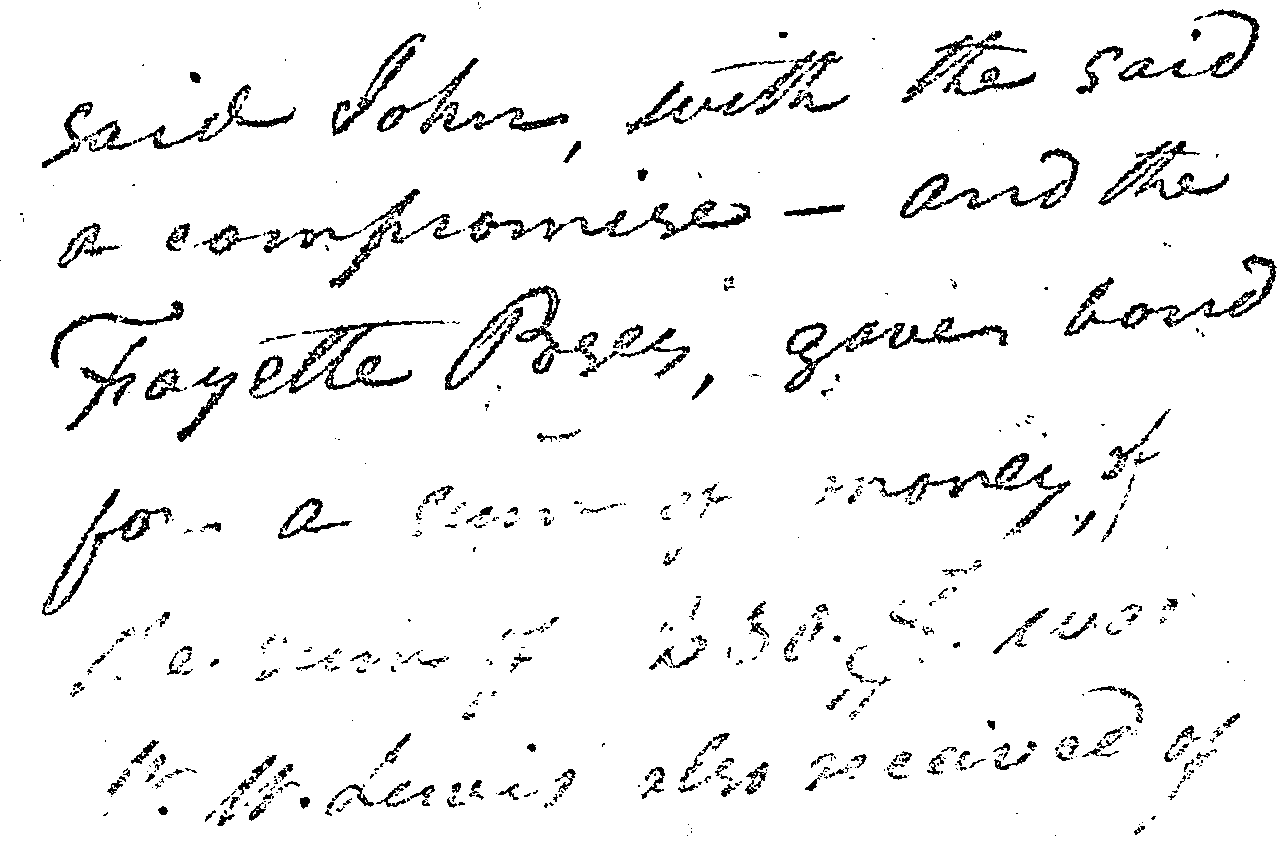 said John, with the said
a compromise — and the
Fayette Posey, given bond
for a sum of money, of
the sum of was
W. W. Lewis also received of